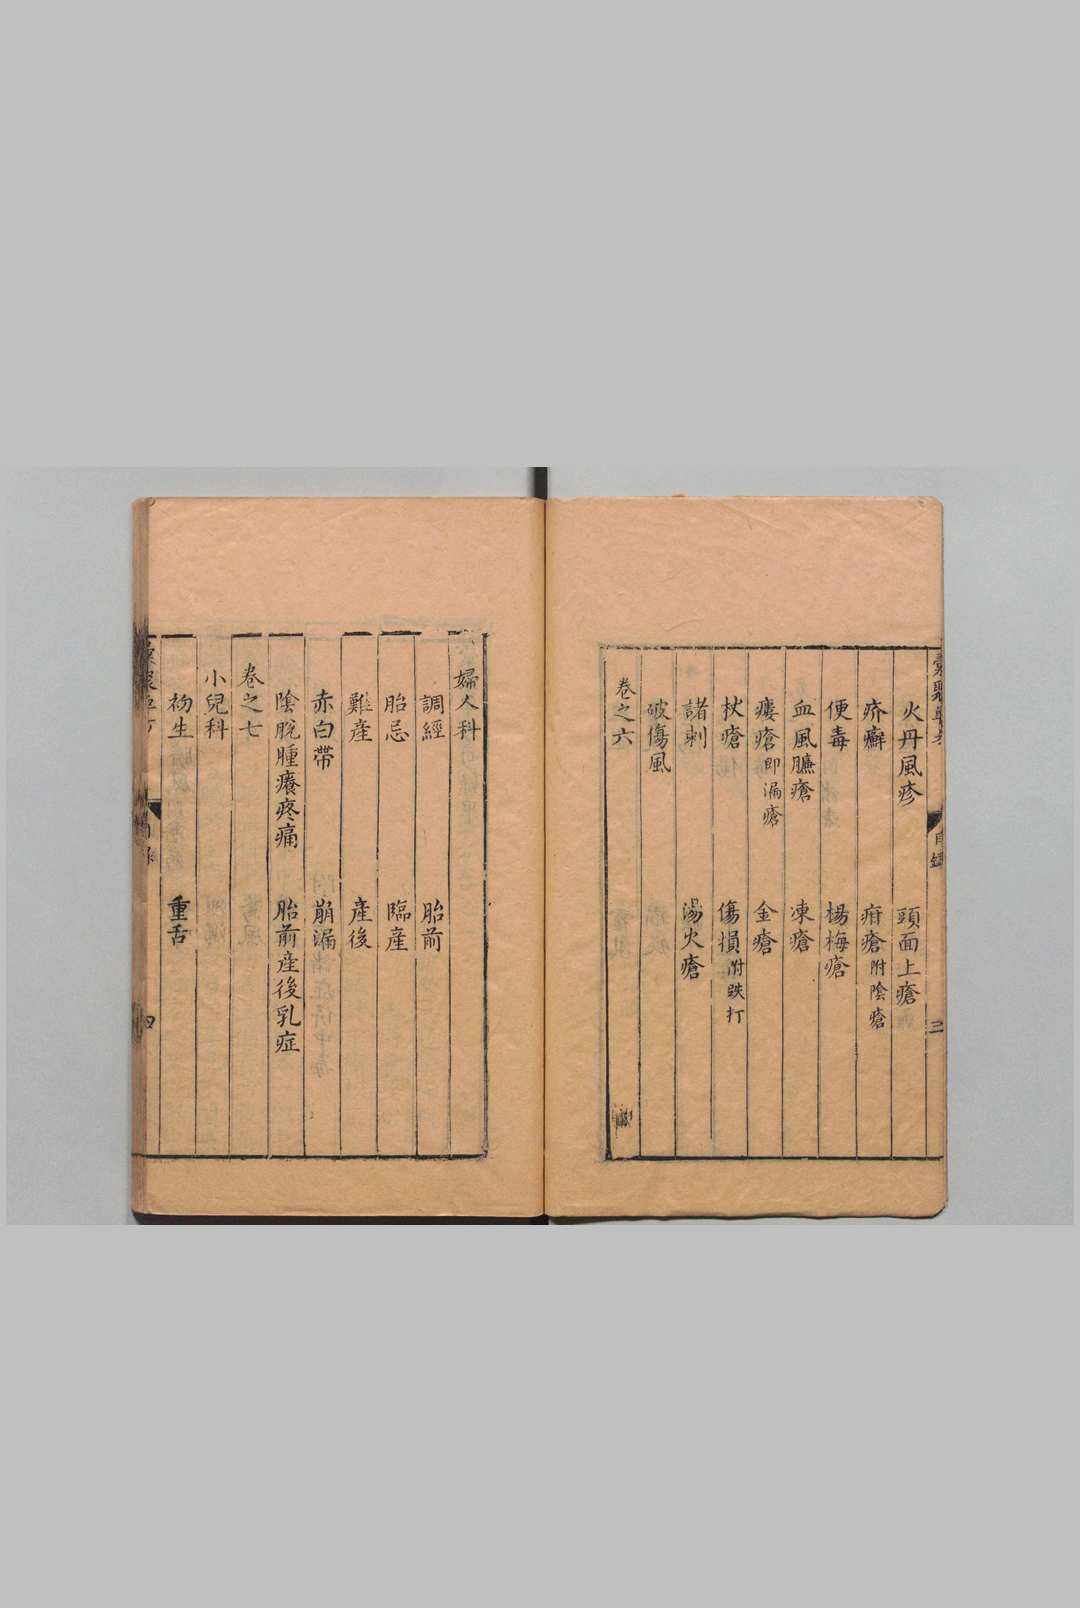 火丹風疹　頭面上瘡
疥癬　疳瘡附陰瘡
便毒　楊梅瘡
血風臁瘡　凍瘡
瘻瘡即漏瘡　金瘡
杖瘡　傷損附跌打
諸刺　湯火瘡
破傷風
卷之六
目錄　三
婦人科
調經　胎前
胎忌　臨產
難產　產後
赤白帶　崩漏
陰脫腫癢疼痛　胎前產後乳症
卷之七
小兒科
初生　重舌
四